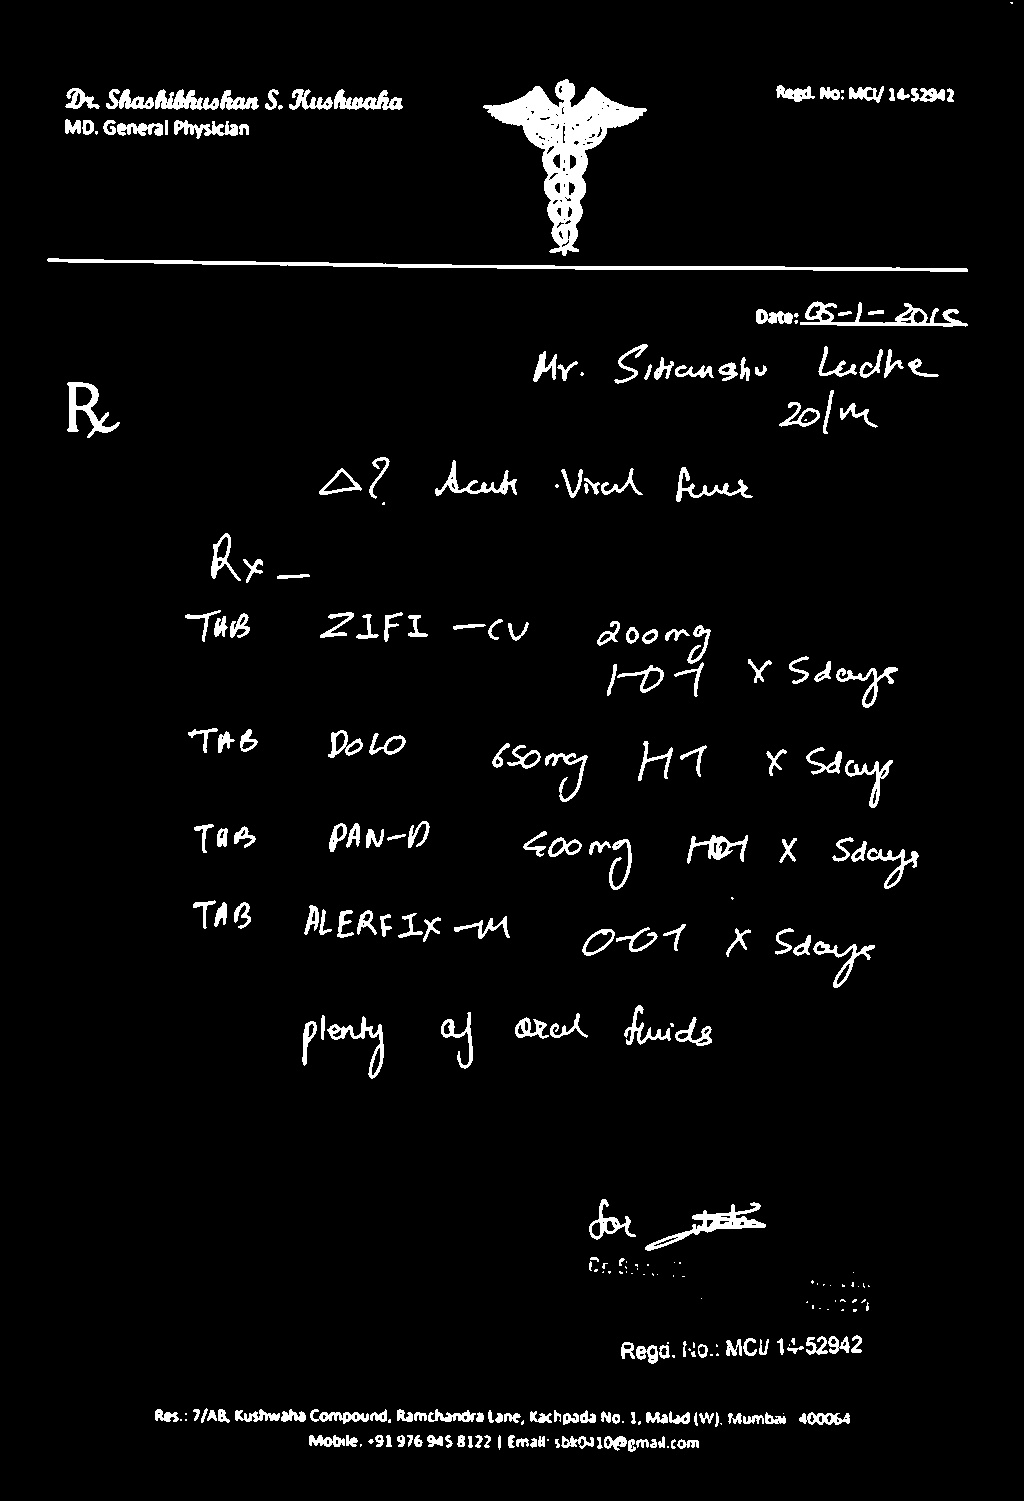 Dr. Shashibhushan S. Kushwaha
MD. General Physician
Regd. No: MCI/ 14-52942
Date: 05-1-2015
Mr. Sitanshu Ladhe
20/M
Rx
Δ? Acute Viral fever
Rx —
TAB ZIFI -CV 200mg
1-0-1 X 5days
TAB DOLO 650mg 1-1-1 X 5days
TAB PAN-D 400mg 1-0-1 X 5days
TAB ALERFIX-M 0-0-1 X 5days
plenty of oral fluids
for
Regd. No.: MCI/ 14-52942
Res.: 7/AB, Kushwaha Compound, Ramchandra Lane, Kachpada No. 1, Malad (W), Mumbai 400064
Mobile. +91 976 945 8122 | Email: sbk0410@gmail.com